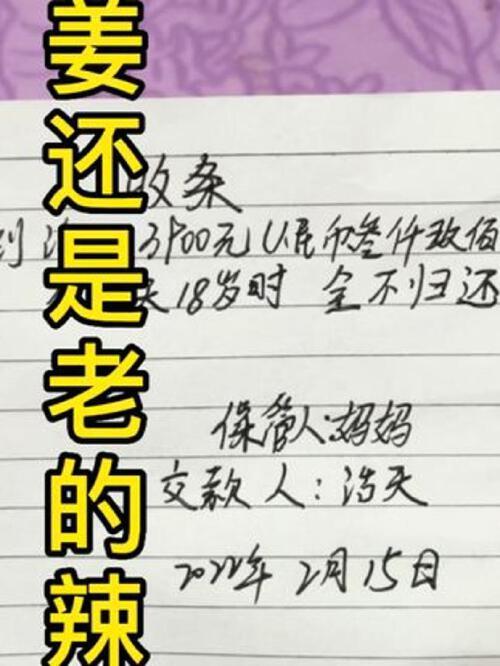 姜还是老的辣
收条
到浩 3900元人民币叁仟玖佰
天18岁时 全不归还
保管人:妈妈
交款人:浩天
2022年2月15日